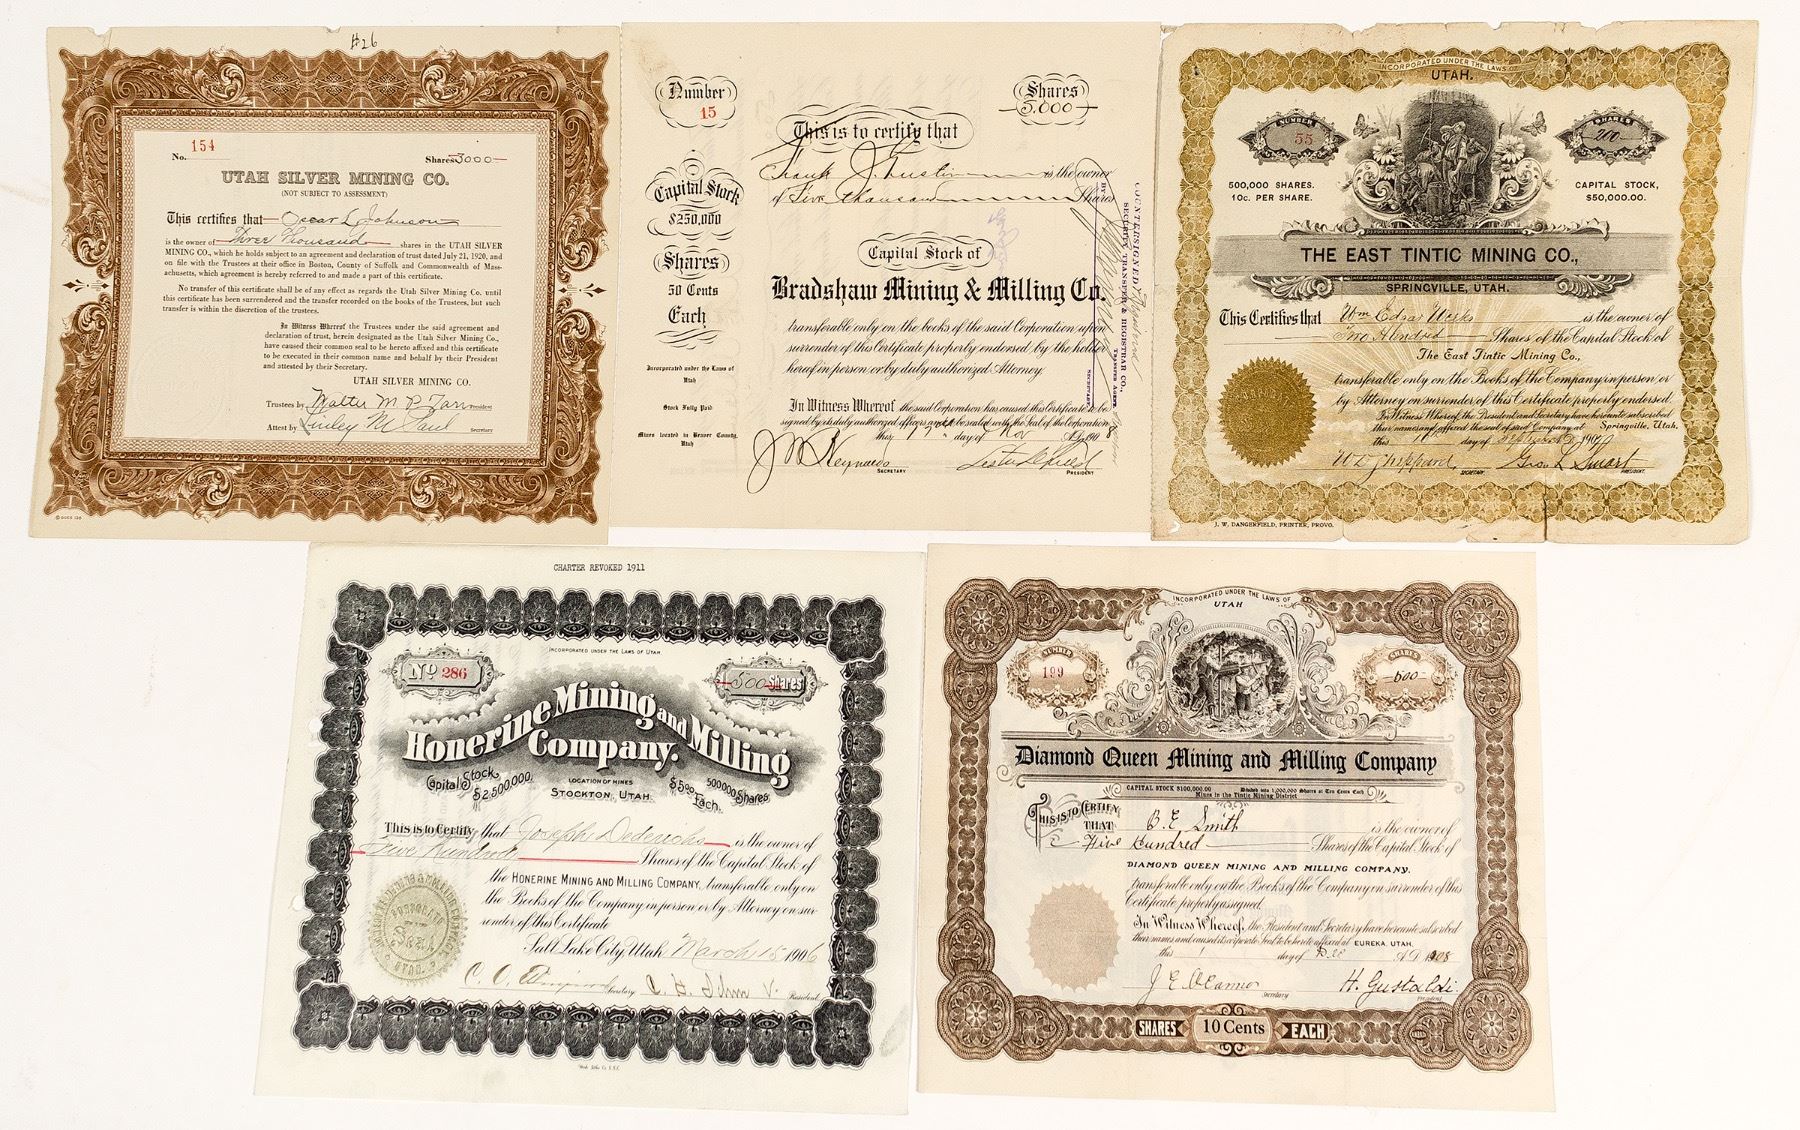 #26
No. 154
Shares 3000
UTAH SILVER MINING CO.
(NOT SUBJECT TO ASSESSMENT)
This certifies that Oscar L. Johnson
is the owner of Three Thousand shares in the UTAH SILVER
MINING CO., which he holds subject to an agreement and declaration of trust dated July 21, 1920, and
on file with the Trustees at their office in Boston, County of Suffolk and Commonwealth of Mas-
sachusetts, which agreement is hereby referred to and made a part of this certificate.
No transfer of this certificate shall be of any effect as regards the Utah Silver Mining Co. until
this certificate has been surrendered and the transfer recorded on the books of the Trustees, but such
transfer is within the discretion of the trustees.
In Witness Whereof the Trustees under the said agreement and
declaration of trust, herein designated as the Utah Silver Mining Co.,
have caused their common seal to be hereto affixed and this certificate
to be executed in their common name and behalf by their President
and attested by their Secretary.
UTAH SILVER MINING CO.
Trustees by Walter M. P. President
Attest by M Paul Secretary
© GOES
Number
15
Shares
5,000
This is to certify that
Frank J. is the owner
of Five thousand Shares
Capital Stock
$250,000
Shares
50 Cents
Each
Incorporated under the Laws of
Utah
Stock Fully Paid
Mines located in Beaver County,
Utah
Capital Stock of
Bradshaw Mining & Milling Co.
transferable only on the books of the said Corporation upon
surrender of this Certificate properly endorsed by the holder
hereof in person, or by duly authorized Attorney.
In Witness Whereof the said Corporation has caused this Certificate to be
signed by its duly authorized officers and to be sealed with the Seal of the Corporation
this day of Nov A.D. 1908
J M Reynolds SECRETARY
PRESIDENT
COUNTERSIGNED
SECURITY TRANSFER & REGISTRAR CO.,
TRANSFER AGENT
BY
SECRETARY
INCORPORATED UNDER THE LAWS OF
UTAH.
NUMBER
55
SHARES
200
500,000 SHARES.
10c. PER SHARE.
CAPITAL STOCK,
$50,000.00.
THE EAST TINTIC MINING CO.,
SPRINGVILLE, UTAH.
This Certifies that Wm Edgar is the owner of
Two Hundred Shares of the Capital Stock of
The East Tintic Mining Co.,
transferable only on the Books of the Company in person or
by Attorney on surrender of this Certificate properly endorsed.
In Witness Whereof the President and Secretary have hereunto subscribed
their names and affixed the seal of said Company at Springville, Utah.
this day of 190
SECRETARY.
Geo L Smart PRESIDENT.
J. W. DANGERFIELD, PRINTER, PROVO.
CHARTER REVOKED 1911
INCORPORATED UNDER THE LAWS OF UTAH.
No 286
500 Shares
Honerine Mining and Milling
Company.
Capital Stock
$2,500,000.
LOCATION OF MINES
STOCKTON, UTAH.
500000 Shares
$5.00 Each.
This is to Certify that Joseph Dederichs is the owner of
Five Hundred Shares of the Capital Stock of
the HONERINE MINING AND MILLING COMPANY, transferable only on
the Books of the Company in person or by Attorney on sur-
render of this Certificate
Salt Lake City, Utah March 15 1906
Secretary
President
INCORPORATED UNDER THE LAWS OF
UTAH
NUMBER
199
SHARES
500
Diamond Queen Mining and Milling Company
CAPITAL STOCK $100,000.00 Divided into 1,000,000 Shares at Ten Cents Each
Mines in the Tintic Mining District
THIS IS TO CERTIFY
THAT B. E. Smith is the owner of
Five Hundred Shares of the Capital Stock of
DIAMOND QUEEN MINING AND MILLING COMPANY.
transferable only on the Books of the Company on surrender of this
Certificate properly assigned.
In Witness Whereof, the President and Secretary have hereunto subscribed
their names and caused its corporate Seal to be hereto affixed at EUREKA, UTAH,
this 1 day of A.D. 1908
Secretary
H. Gustaldi
President
SHARES 10 Cents EACH